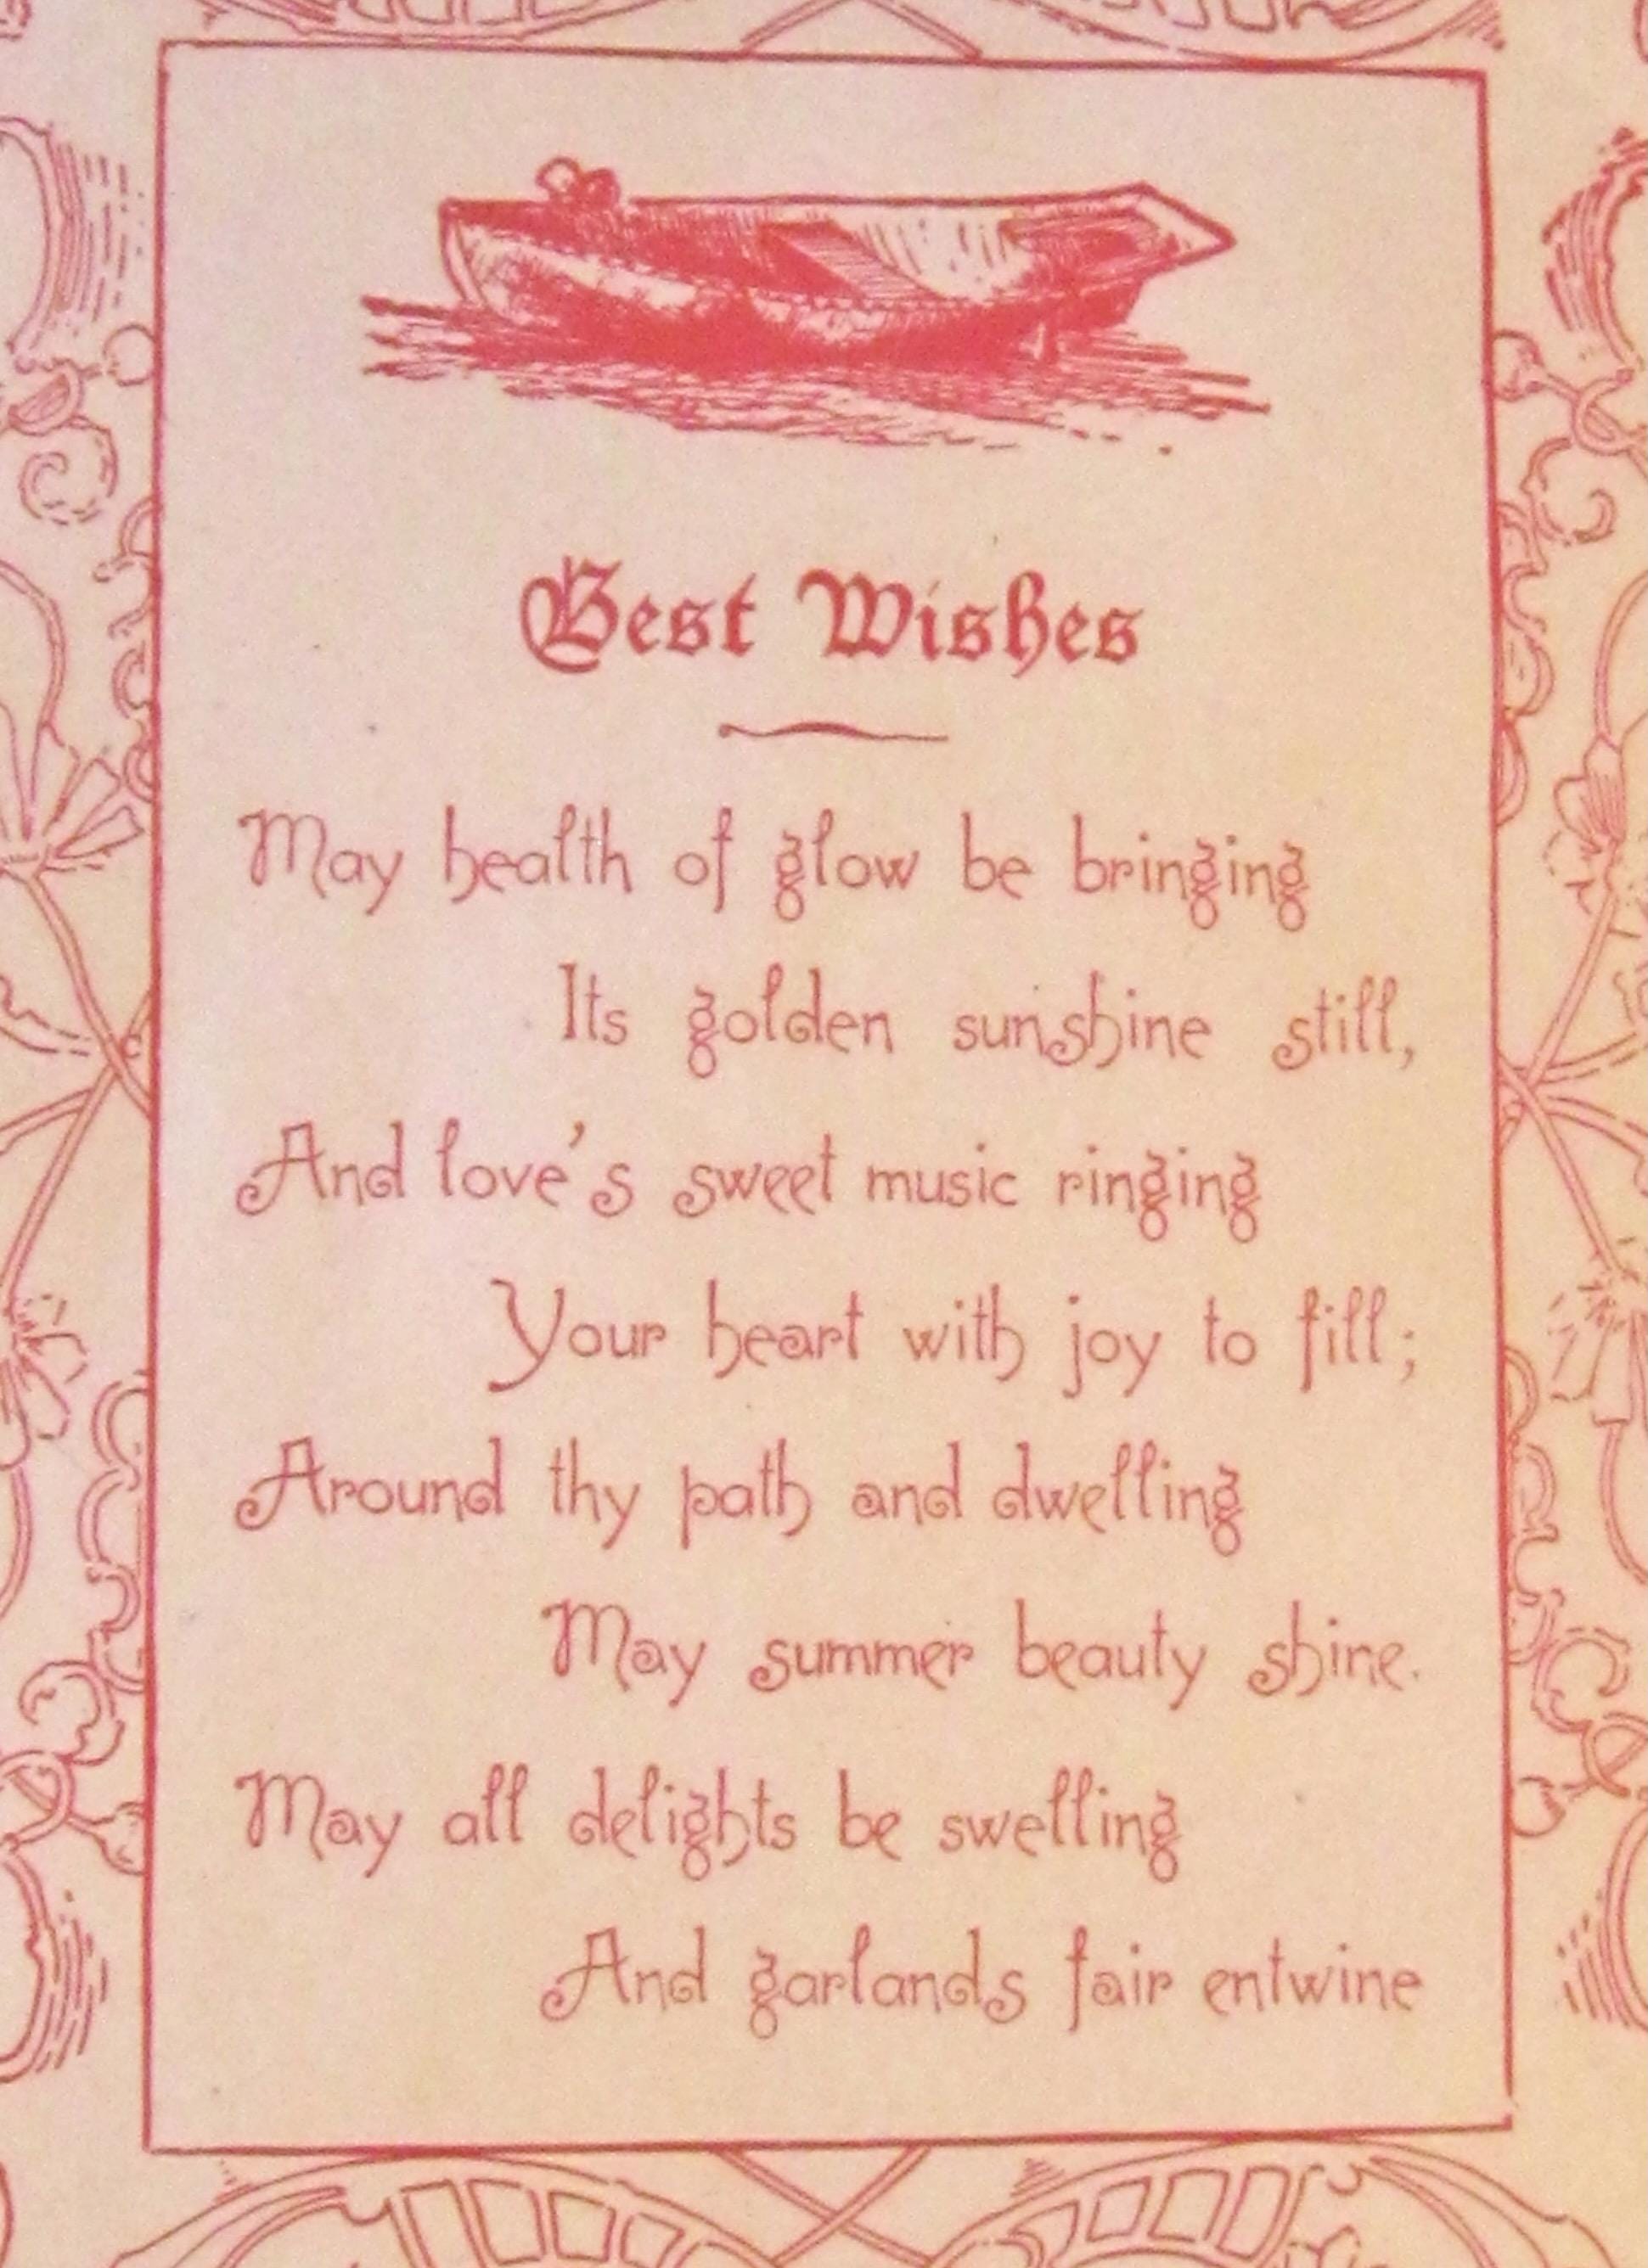 Best Wishes
May health of glow be bringing
Its golden sunshine still,
And love's sweet music ringing
Your heart with joy to fill;
Around thy path and dwelling
May summer beauty shine.
May all delights be swelling
And garlands fair entwine